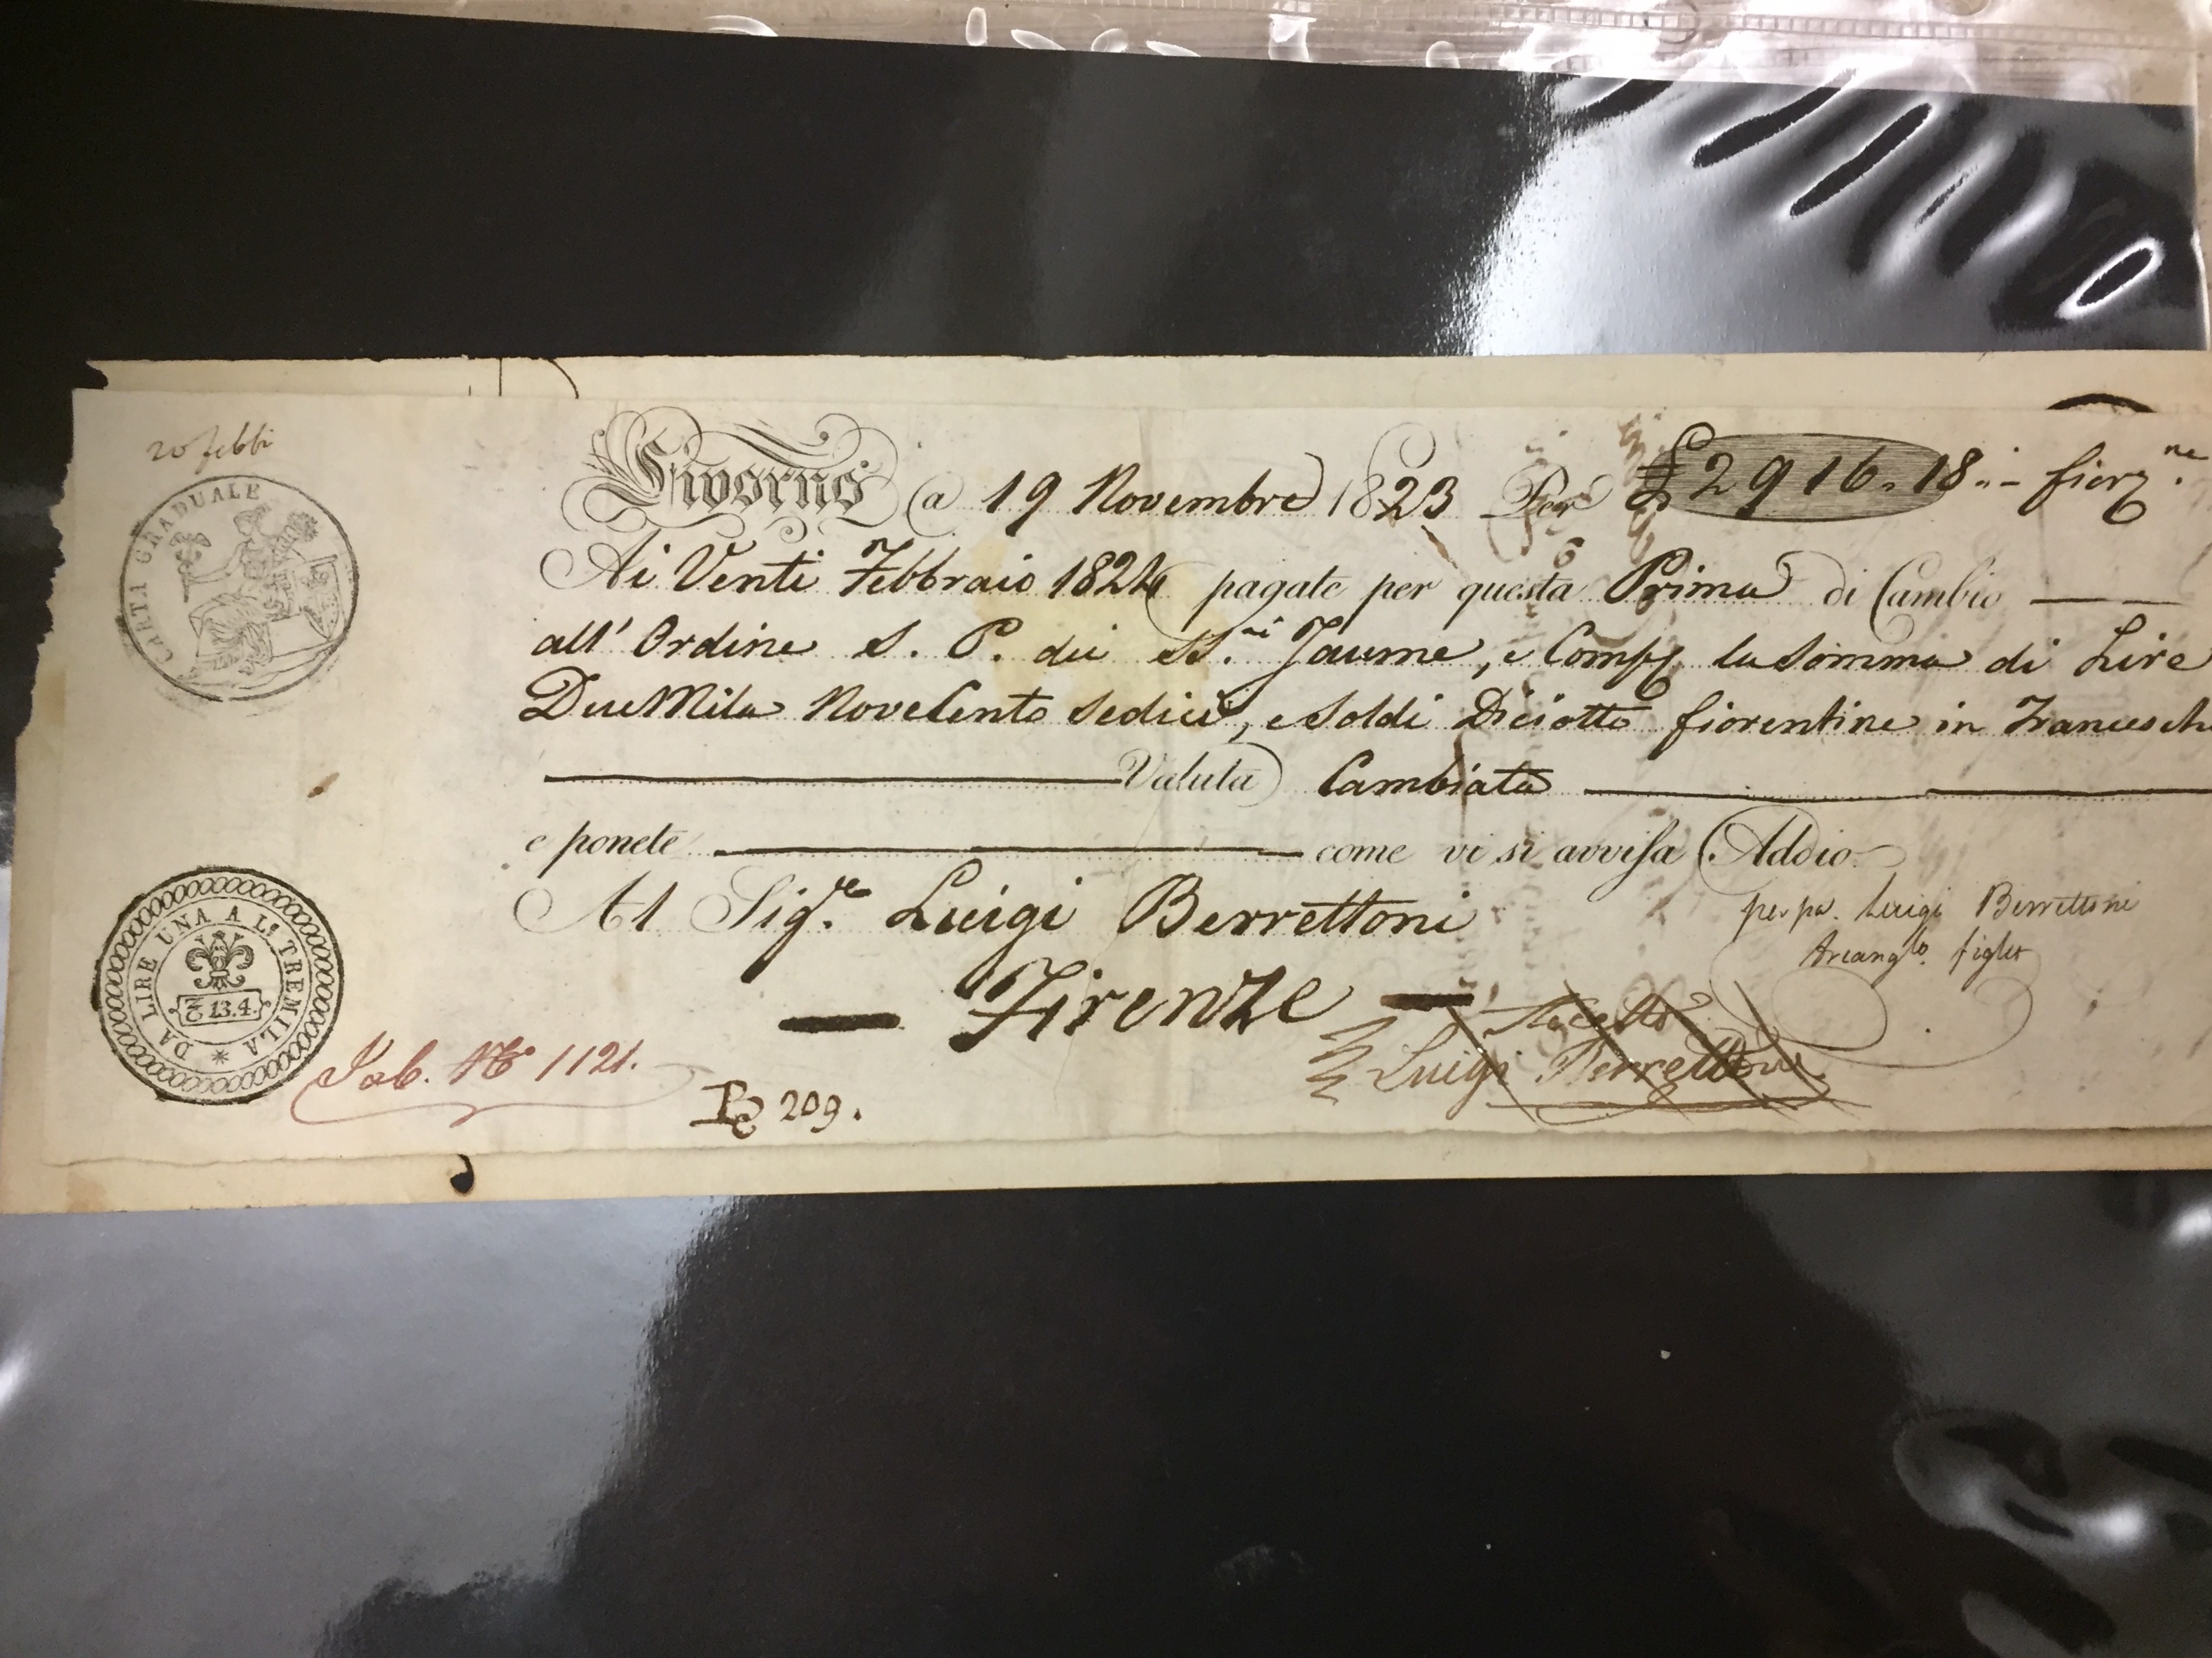 20 febb
CARTA GRADUALE
Livorno a 19 Novembre 1823 Per £ 2916.18.- fior.ne
Ai Venti Febbraio 1824 pagate per questa Prima di Cambio
all' Ordine S. P. dei SS.ri Jaume, e Comp. la Somma di Lire
DueMila NoveCento Sedici, e Soldi Diciotto fiorentine in Francesch
Valuta Cambiata
e ponete come vi si avvisa Addio.
Al Sig.re Luigi Berrettoni
per pa. Luigi Berrettoni
Arcang.lo figlio
Firenze
Accetto
Luigi Berrettoni
DA LIRE UNA A L.e TREMILA
13.4.
No 1121.
209.